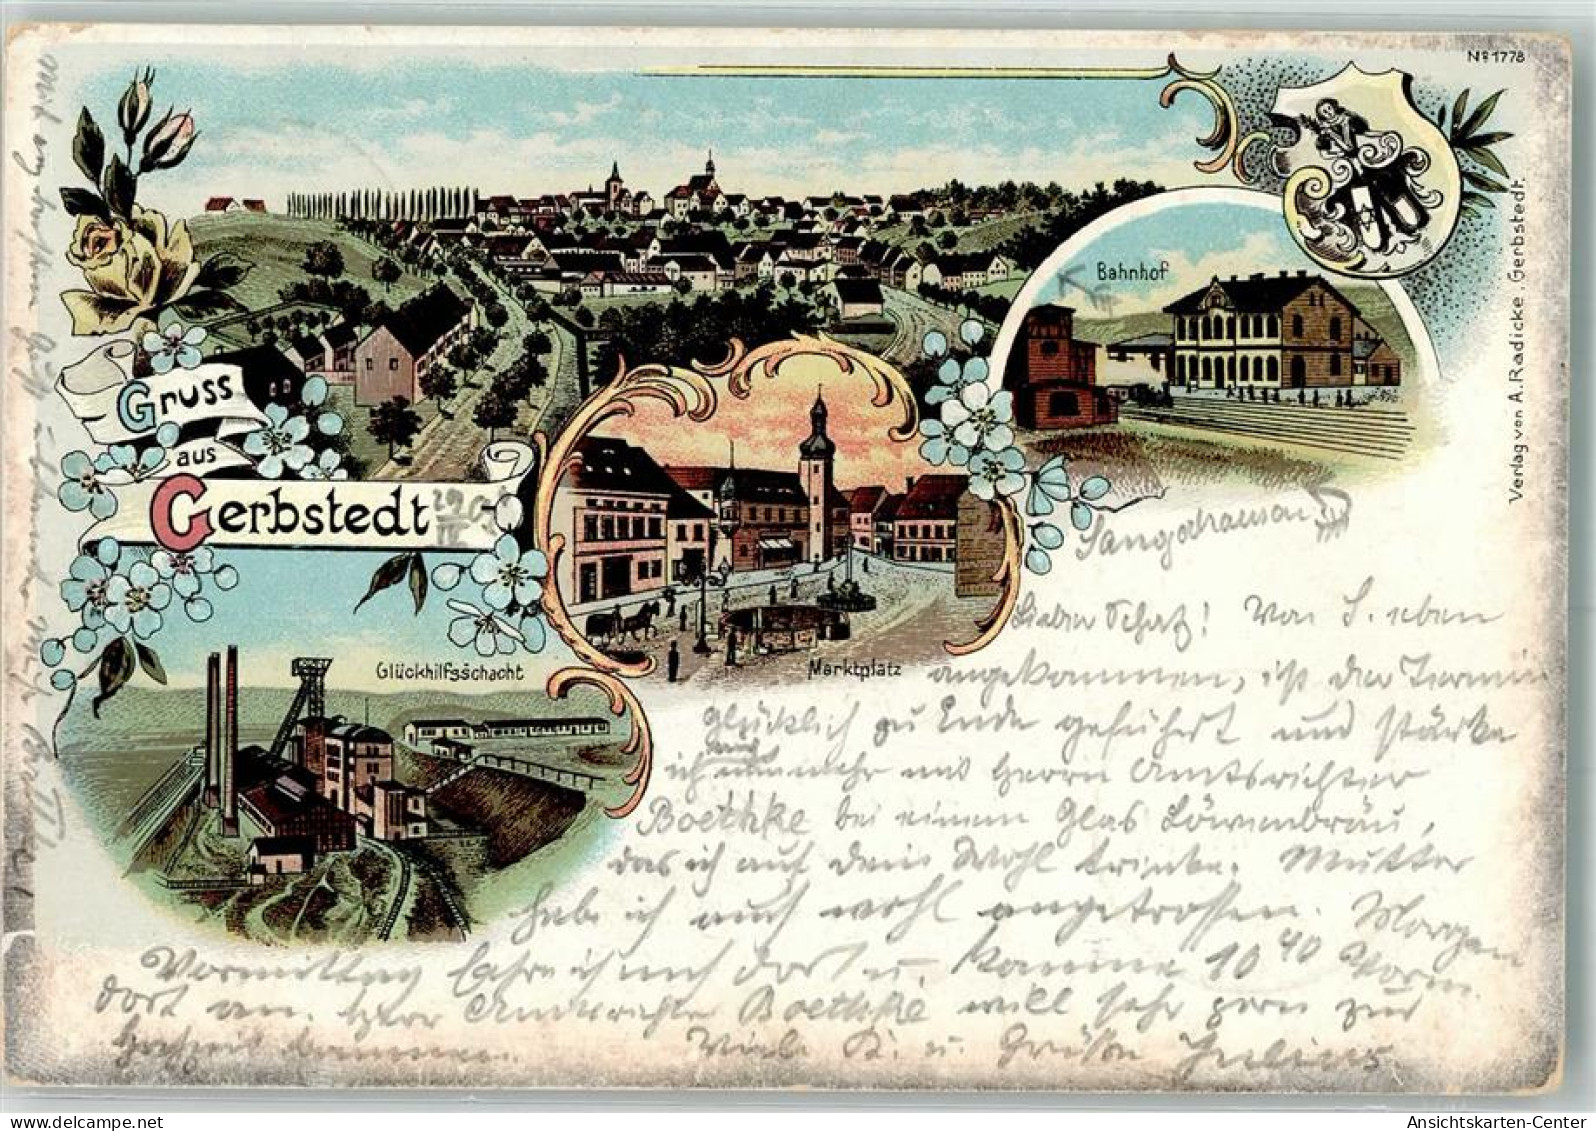 No 1778
Bahnhof
Gruss
aus
Gerbstedt
29/IV 03
Glückhilfsschacht
Marktplatz
Verlag von A. Radicke, Gerbstedt.
Sangerhausen!
Lieber Schatz! Von S. eben
angekommen, ist der Termin
glücklich zu Ende geführt und stärke
ich mich
nunmehr mit Herrn Amtsrichter
Boethke bei einem Glas Löwenbräu,
das ich auf dein Wohl trinke. Mutter
habe ich auch wohl angetroffen. Morgen
Vormittag fahre ich nach dort u. komme 10 40 Vorm.
dort an. Herr Amtsrichter Boethke will sehr gern zur
Hochzeit kommen. Viele K. u. Grüße Julius
Ansichtskarten-Center